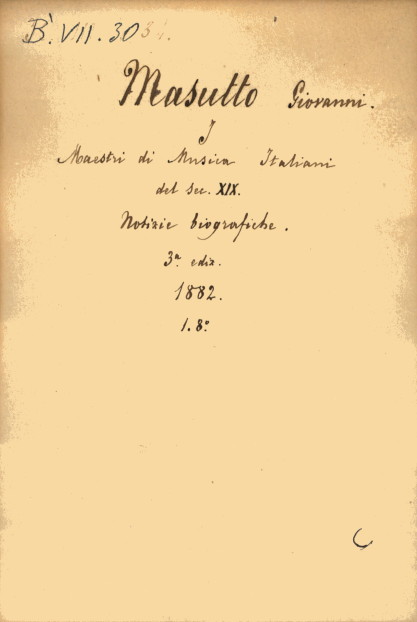 B. VII. 30
Masutto Giovanni.
I
Maestri di Musica Italiani
del Sec. XIX.
Notizie biografiche.
3ª ediz.
1882.
1.8º
C